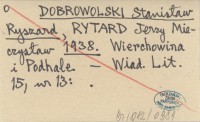 o DOBROWOLSKI Stanisław
Ryszard, RYTARD Jerzy Mie-
czysław 1938. Wierchowina
i Podhale. – Wiad. Lit.
15, nr 13: .